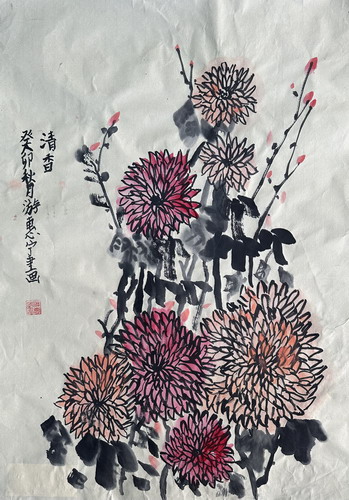 清香
癸卯秋月游惠宁画